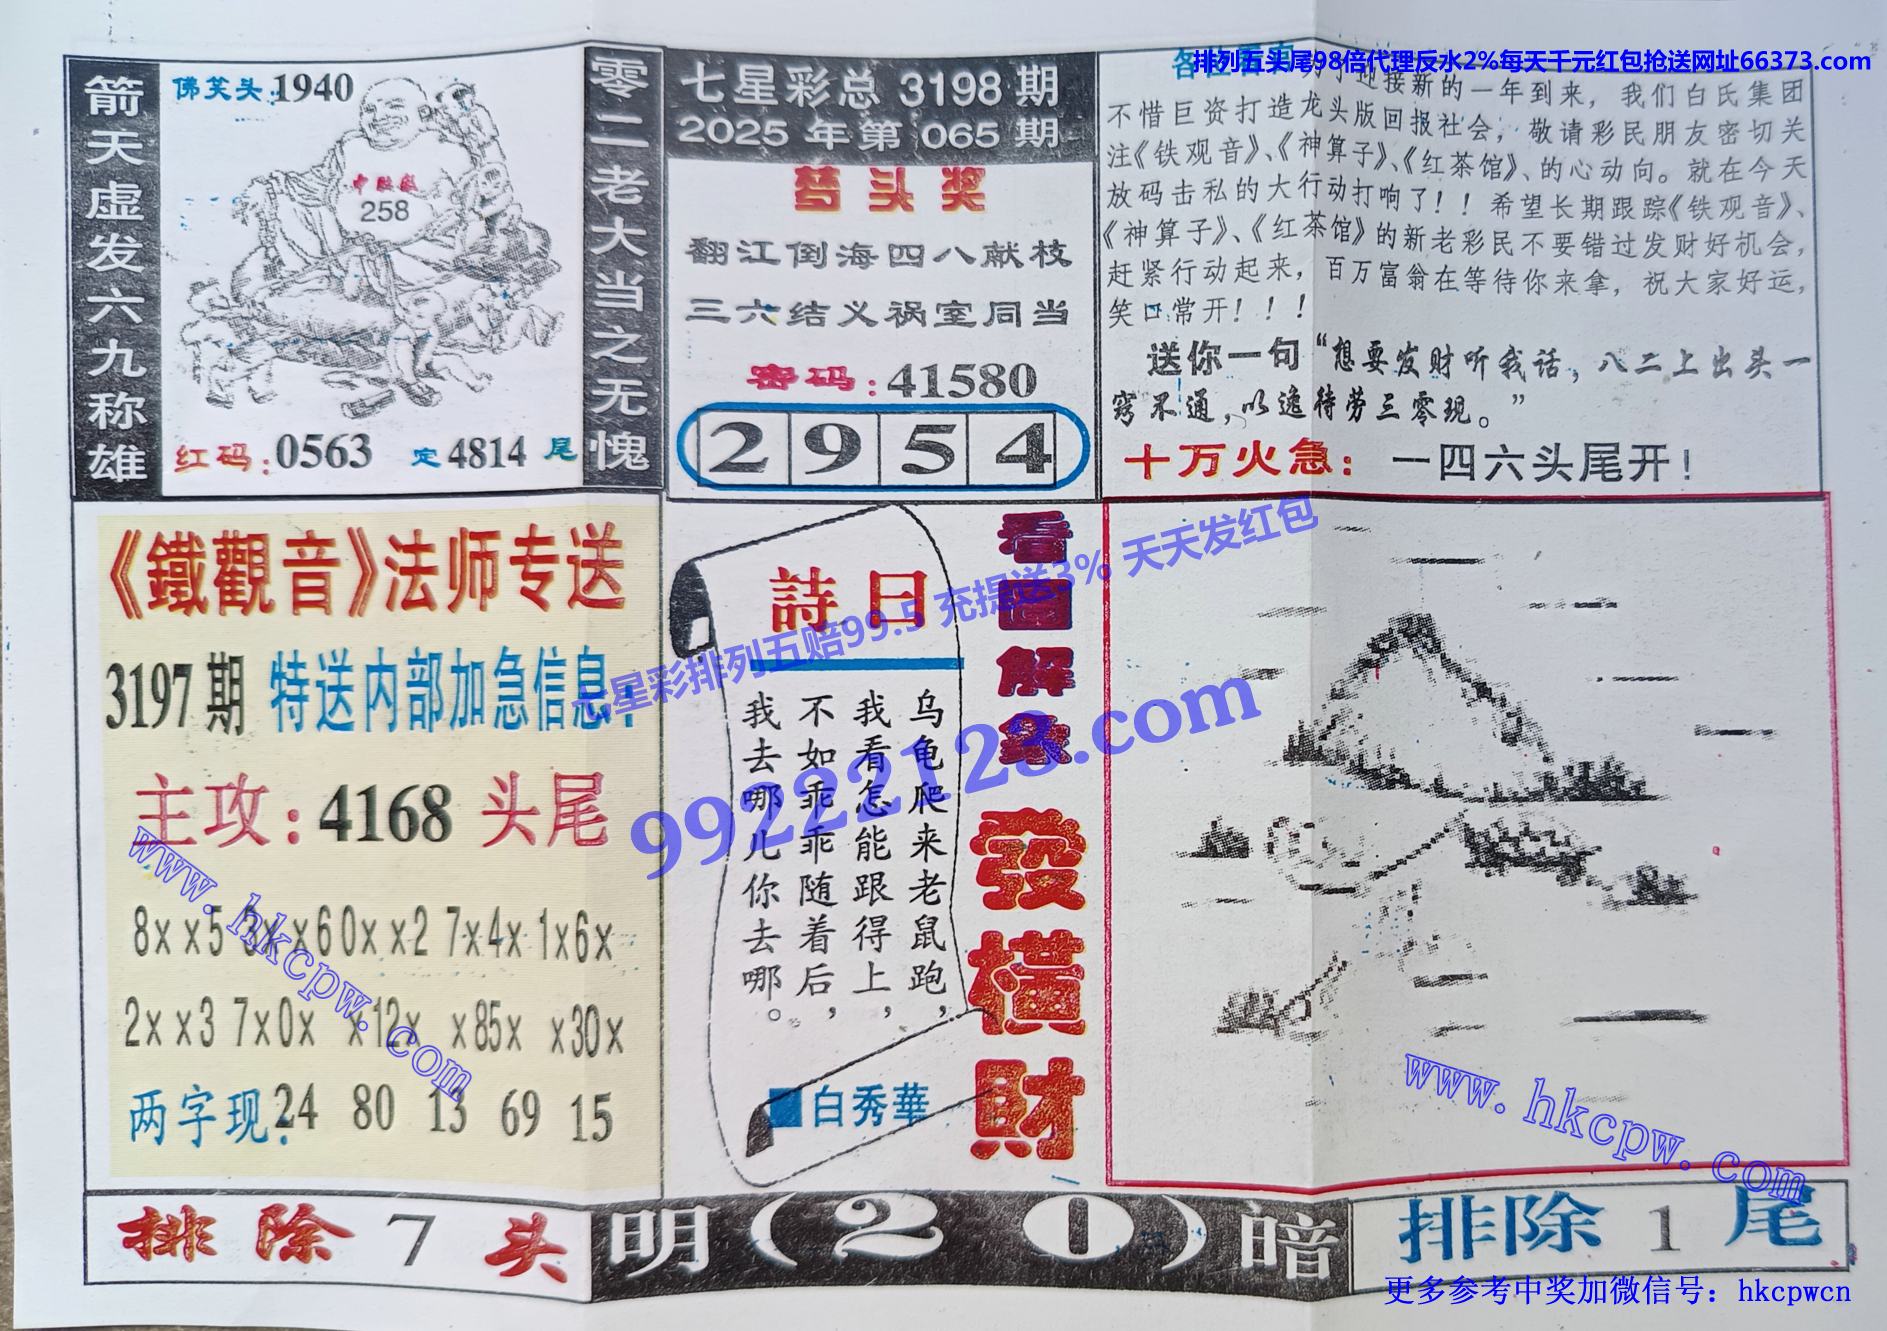 排列五头尾98倍代理反水2%每天千元红包抢送网址66373.com
箭天虚发六九称雄
佛笑头:1940
258
红码:0563 定4814尾
零二老大当之无愧
七星彩总3198期
2025年第065期
梦头奖
翻江倒海四八献枝
三六结义祸室同当
密码:41580
2954
接新的一年到来，我们白氏集团
不惜巨资打造龙头版回报社会，敬请彩民朋友密切关
注《铁观音》、《神算子》、《红茶馆》、的心动向。就在今天
放码击私的大行动打响了！！希望长期跟踪《铁观音》、
《神算子》、《红茶馆》的新老彩民不要错过发财好机会，
赶紧行动起来，百万富翁在等待你来拿，祝大家好运，
笑口常开！！！
送你一句“想要发财听我话，八二上出头一
窍不通，以逸待劳三零现。”
十万火急：一四六头尾开！
《鐵觀音》法师专送
3197期 特送内部加急信息：
主攻：4168头尾
8xx5 3xx6 0xx2 7x4x 1x6x
2xx3 7x0x x12x x85x x30x
两字现：24 80 13 69 15
詩曰
乌龟爬来老鼠跑，
我看怎能跟得上，
不如乖乖随着后，
我去哪儿你去哪。
白秀華
看圖解象
發橫財
七星彩排列五赔99.5 充提送3% 天天发红包
99222123.com
www.hkcpw.com
www.hkcpw.com
排除7头
明(20)暗
排除1尾
更多参考中奖加微信号：hkcpwcn